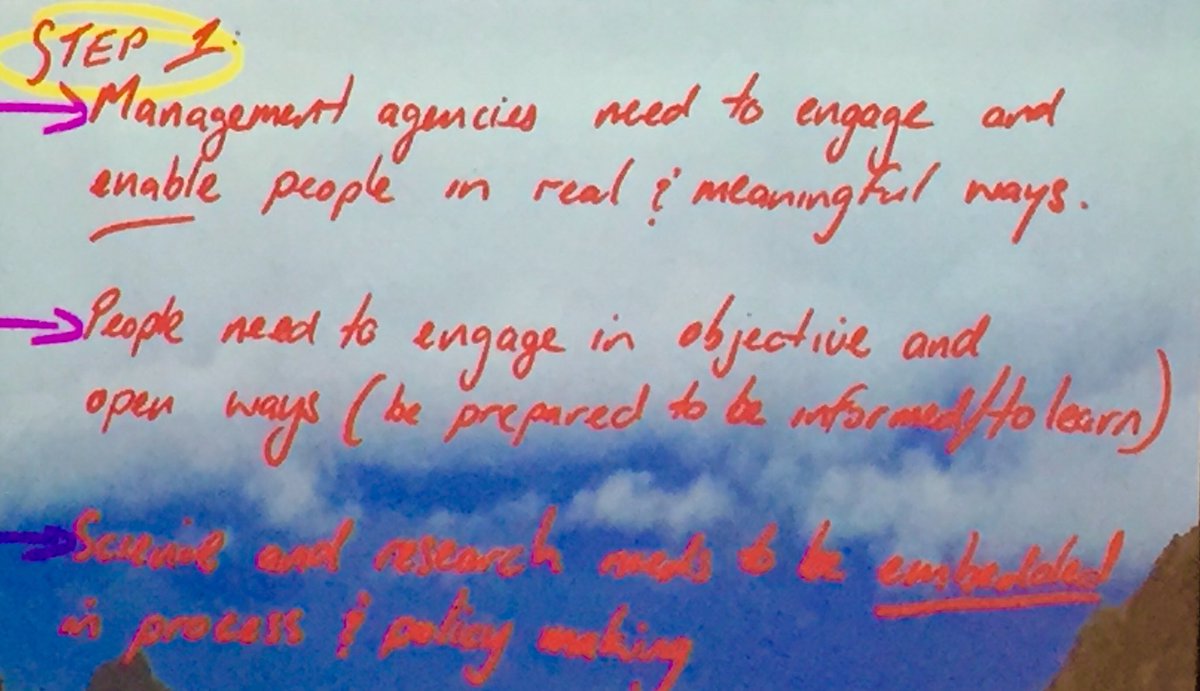 STEP 1.
Management agencies need to engage and
enable people in real & meaningful ways.
People need to engage in objective and
open ways (be prepared to be informed/to learn)
Science and research needs to be embedded
in process & policy making